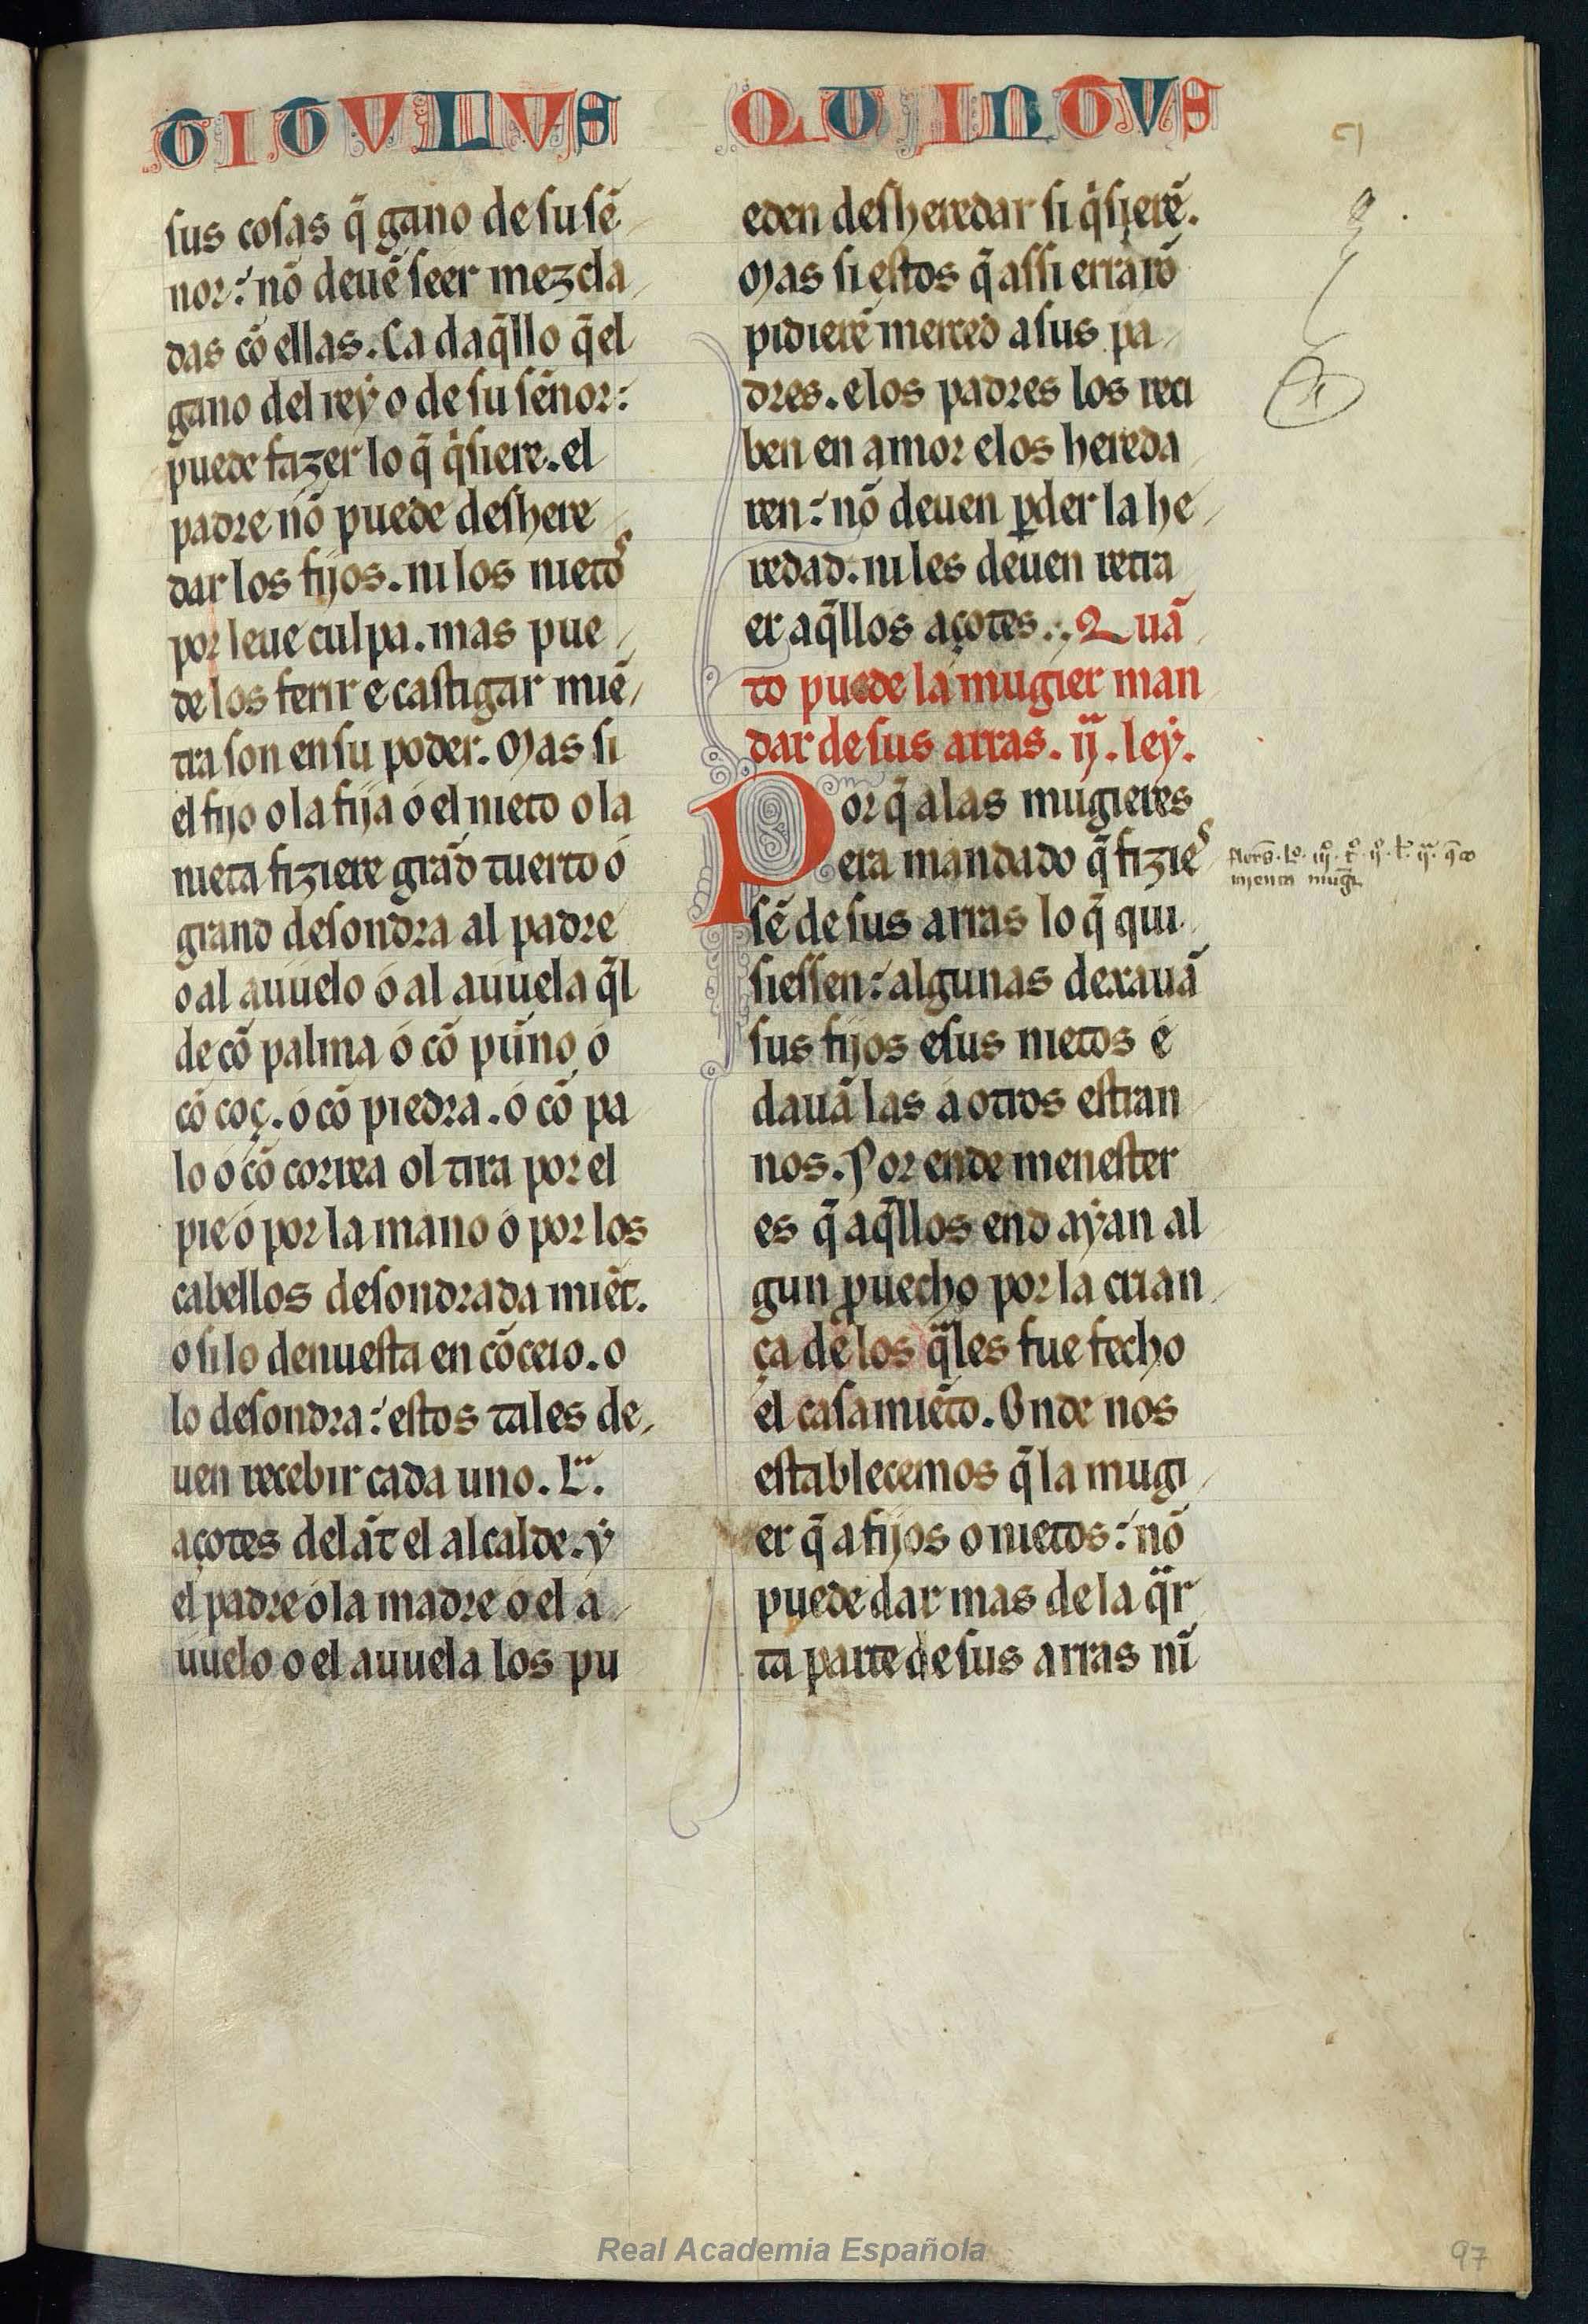 TITULVS QUINTVS
sus cosas q̃ gano de su sẽ
nor: nõ deuẽ seer mezcla
das cõ ellas. Ca daq̃llo q̃ el
gano del reẏ o de su sẽnor:
puede fazer lo q̃ q̇siere. el
padre nõ puede deshere
dar los fijos. ni los nietos
por leue culpa. mas pue
de los ferir e castigar miẽ
tra son en su poder. Mas si
el fijo o la fija ó el nieto o la
nieta fiziere grãd tuerto ó
grand desondra al padre
o al auuelo ó al auuela q̃l
de cõ palma ó cõ pũno ó
cõ coç. ó cõ piedra. ó cõ pa
lo ó cõ correa ol tira por el
pie ó por la mano ó por los
cabellos desondrada miẽt.
o si lo denuesta en cõceio. o
lo desondra: estos tales de
uen recebir cada uno. L.ᵃ
açotes delãt el alcalde. ẏ
el padre ó la madre ó el a
uuelo o el auuela los pu
eden desheredar si q̇sierẽ.
Mas si estos q̃ assi errarõ
pidierẽ merced a sus pa
dres. e los padres los reci
ben en amor e los hereda
ren: nõ deuen ꝑder la he
redad. ni les deuen retra
er aq̃llos açotes. Quã
to puede la mugier man
dar de sus arras. ij. leẏ.
Por q̃ a las mugieres
era mandado q̃ fizies
sẽ de sus arras lo q̃ qui
siessen: algunas dexauã
sus fijos e sus nietos é
dauã las á otros estran
nos. Por ende menester
es q̃ aq̃llos end aẏan al
gun ꝓuecho por la crian
ça de los q̃les fue fecho
el casamiẽto. Onde nos
establecemos q̃ la mugi
er q̃ a fijos o nietos: nõ
puede dar mas de la q̃r
ta parte de sus arras nĩ
97
Real Academia Española